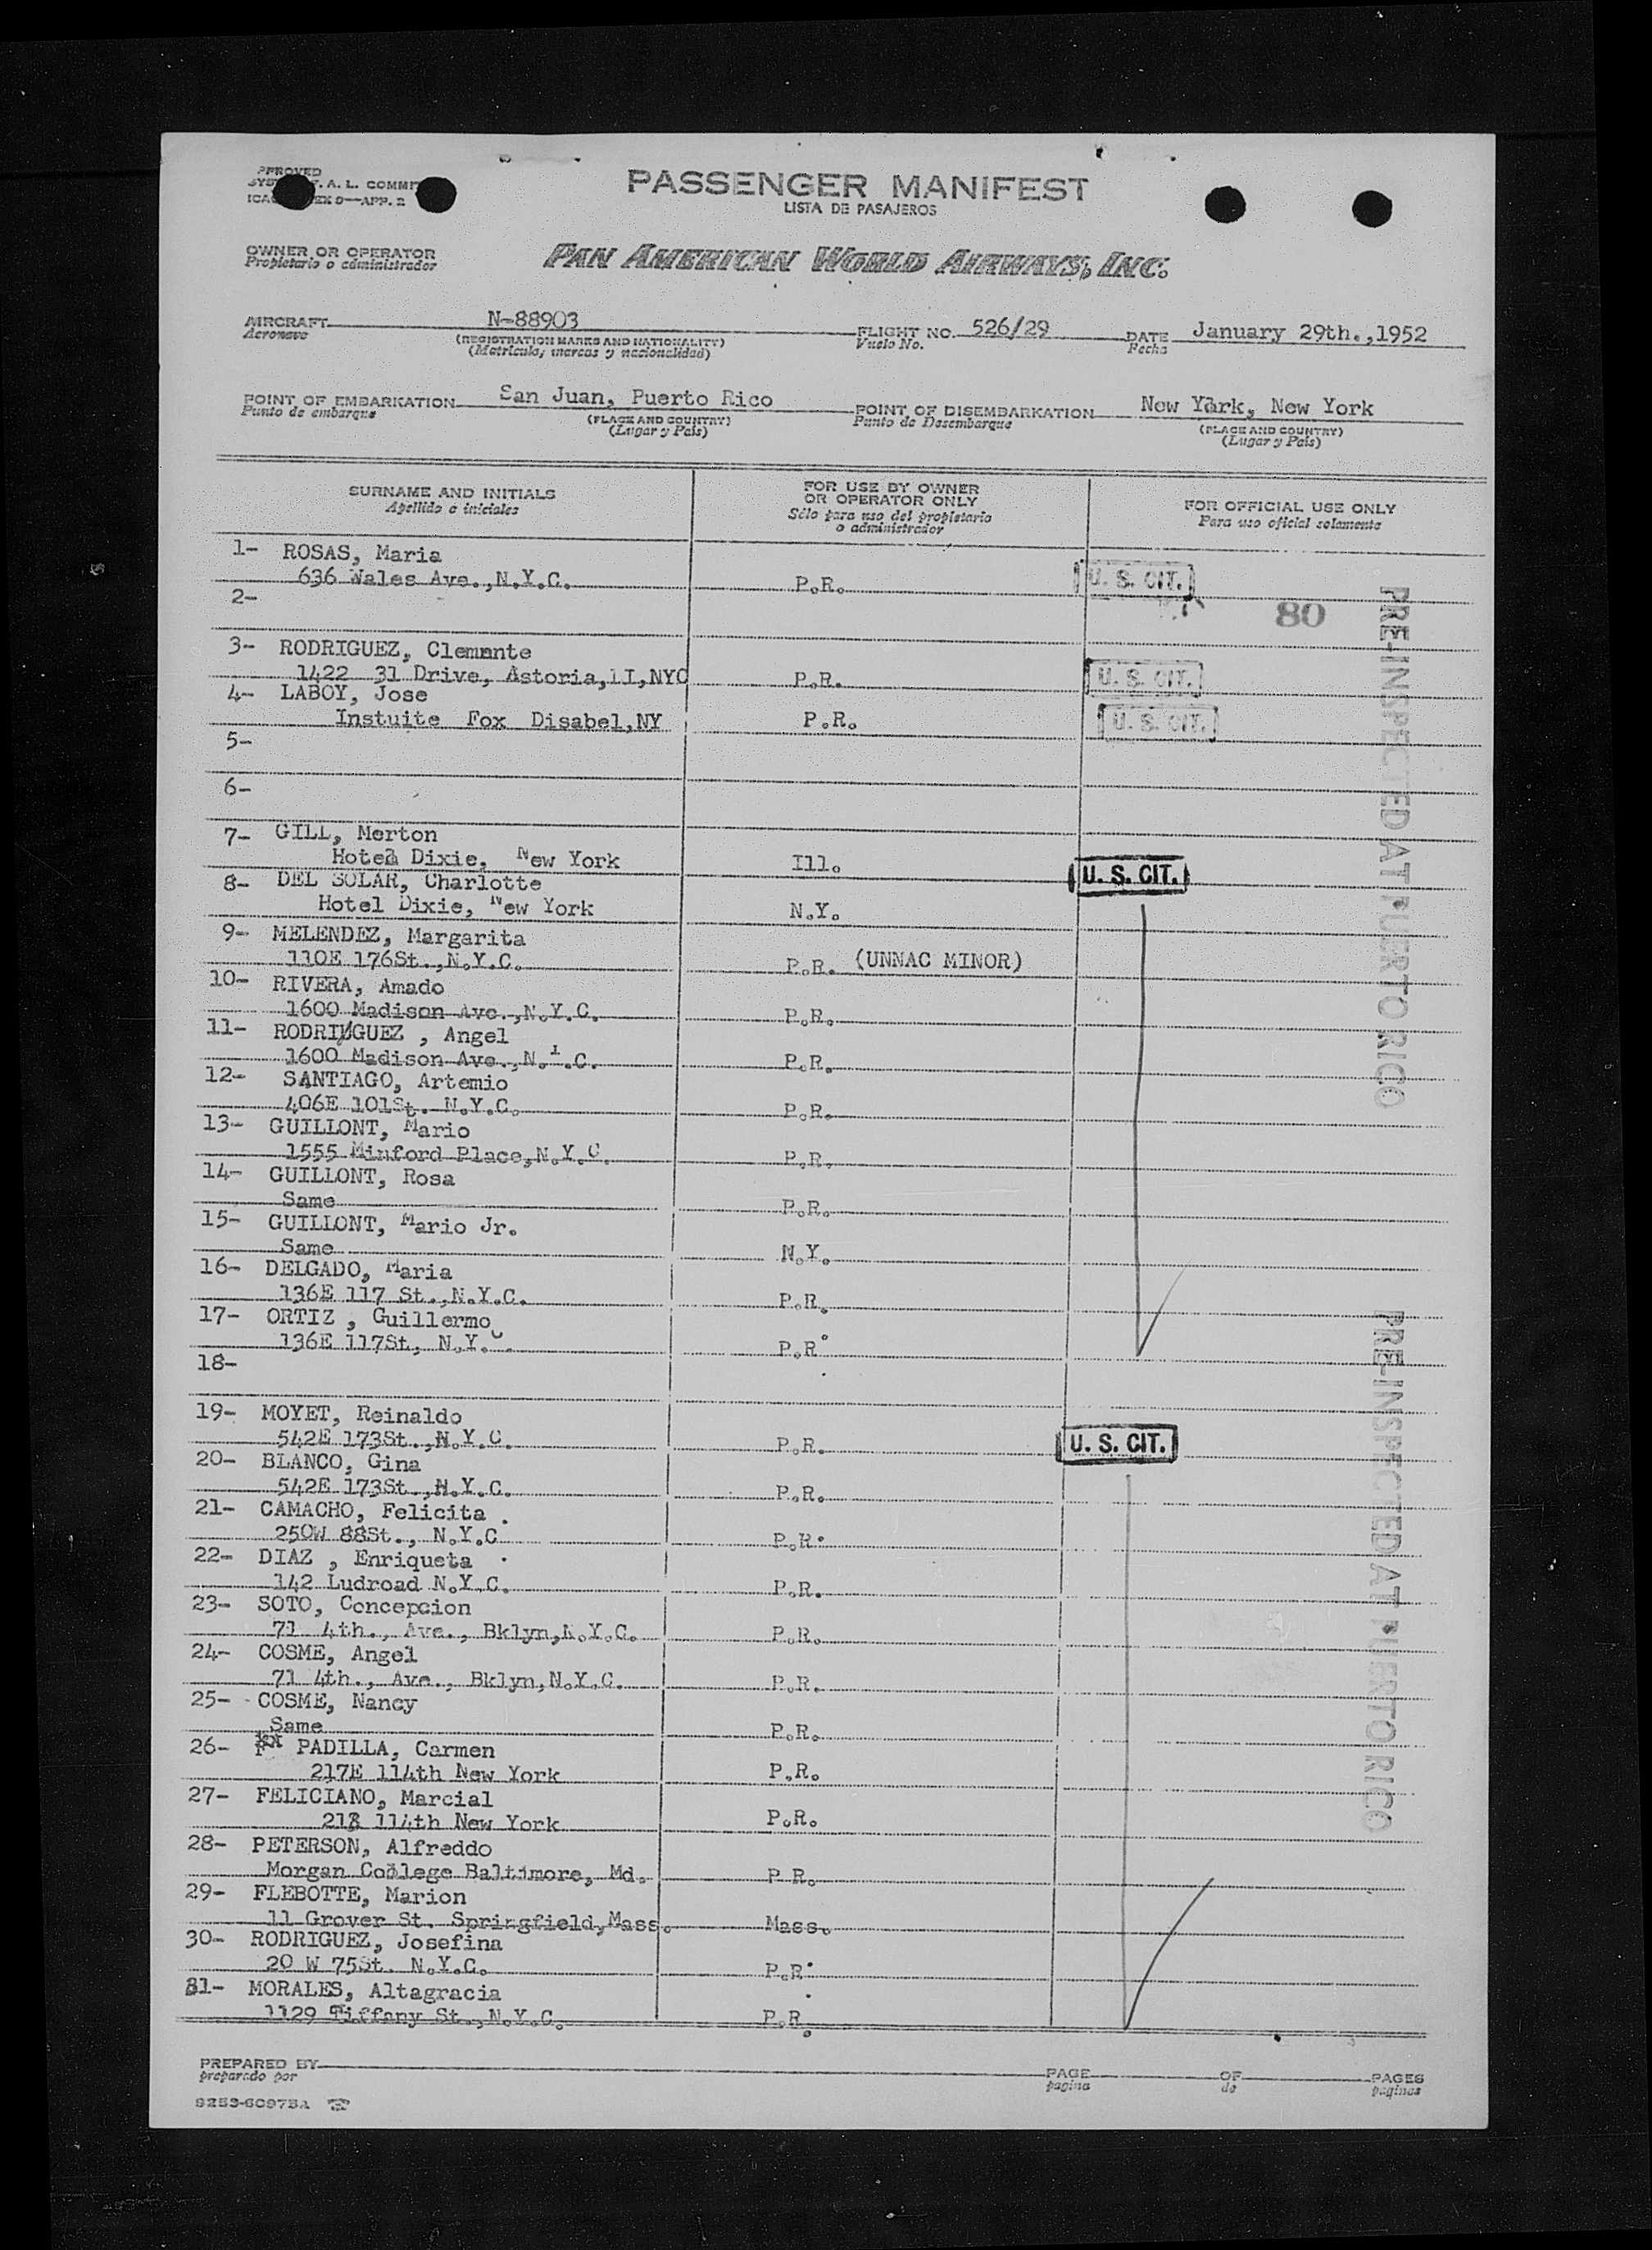 PPROVED
F. A. L. COMMI
ICA EX 9—APP. 2
PASSENGER MANIFEST
LISTA DE PASAJEROS
OWNER OR OPERATOR
Propietario o administrador
PAN AMERICAN WORLD AIRWAYS, INC.
AIRCRAFT N-88903 FLIGHT NO. 526/29 DATE January 29th.,1952
Aeronave (REGISTRATION MARKS AND NATIONALITY) Vuelo No. Fecha
(Matricula, marcas y nacionalidad)
POINT OF EMBARKATION San Juan, Puerto Rico POINT OF DISEMBARKATION New York, New York
Punto de embarque (PLACE AND COUNTRY) Punto de Desembarque (PLACE AND COUNTRY)
(Lugar y País) (Lugar y País)
SURNAME AND INITIALS
Apellido e iniciales
FOR USE BY OWNER
OR OPERATOR ONLY
Sólo para uso del propietario
o administrador
FOR OFFICIAL USE ONLY
Para uso oficial solamente
1- ROSAS, Maria
636 Wales Ave.,N.Y.C. P.R. U. S. CIT.
2- 80
3- RODRIGUEZ, Clemente
1422 31 Drive, Astoria,LI,NYC P.R. U. S. CIT.
4- LABOY, Jose
Instuite Fox Disabel,NY P.R. U. S. CIT.
5-
6-
7- GILL, Merton
Hotel Dixie, New York Ill. U. S. CIT.
8- DEL SOLAR, Charlotte
Hotel Dixie, New York N.Y.
9- MELENDEZ, Margarita
110E 176St.,N.Y.C. P.R. (UNNAC MINOR)
10- RIVERA, Amado
1600 Madison Ave.,N.Y.C. P.R.
11- RODRIGUEZ , Angel
1600 Madison Ave.,N.Y.C. P.R.
12- SANTIAGO, Artemio
406E 101St. N.Y.C. P.R.
13- GUILLONT, Mario
1555 Minford Place,N.Y.C. P.R.
14- GUILLONT, Rosa
Same P.R.
15- GUILLONT, Mario Jr.
Same N.Y.
16- DELGADO, Maria
136E 117 St.,N.Y.C. P.R.
17- ORTIZ , Guillermo
136E 117St, N.Y.C. P.R.
18-
19- MOYET, Reinaldo
542E 173St.,N.Y.C. P.R. U. S. CIT.
20- BLANCO, Gina
542E 173St.,N.Y.C. P.R.
21- CAMACHO, Felicita
250W 88St., N.Y.C. P.R.
22- DIAZ , Enriqueta
142 Ludroad N.Y.C. P.R.
23- SOTO, Concepcion
71 4th., Ave., Bklyn,N.Y.C. P.R.
24- COSME, Angel
71 4th., Ave., Bklyn,N.Y.C. P.R.
25- COSME, Nancy
Same P.R.
26- PADILLA, Carmen
217E 114th New York P.R.
27- FELICIANO, Marcial
218 114th New York P.R.
28- PETERSON, Alfreddo
Morgan College Baltimore, Md. P.R.
29- FLEBOTTE, Marion
11 Grover St. Springfield,Mass. Mass.
30- RODRIGUEZ, Josefina
20 W 75St. N.Y.C. P.R.
31- MORALES, Altagracia
1129 Tiffany St.,N.Y.C. P.R.
PRE-INSPECTED AT PUERTO RICO
PRE-INSPECTED AT PUERTO RICO
PREPARED BY PAGE OF PAGES
preparado por página de páginas
9253-60975A